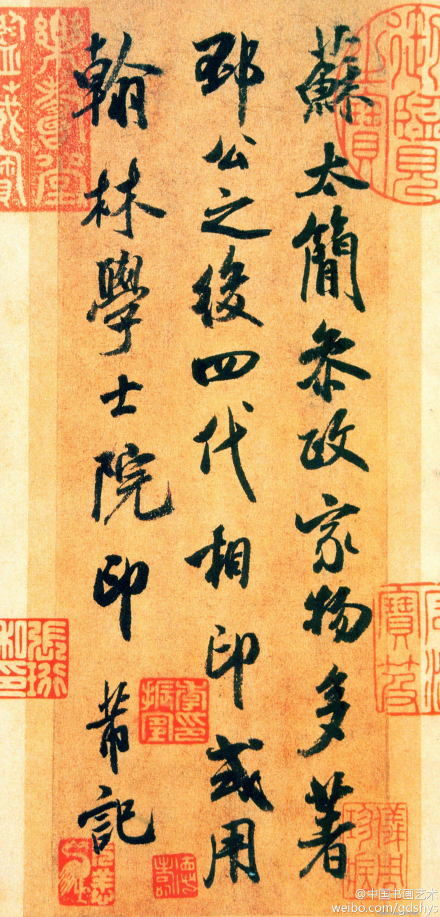 蘇太簡參政家物多著
邳公之後四代相印或用
翰林學士院印 芾記
樂壽堂
鑑藏寶
@中国书画艺术
weibo.com/gdshys